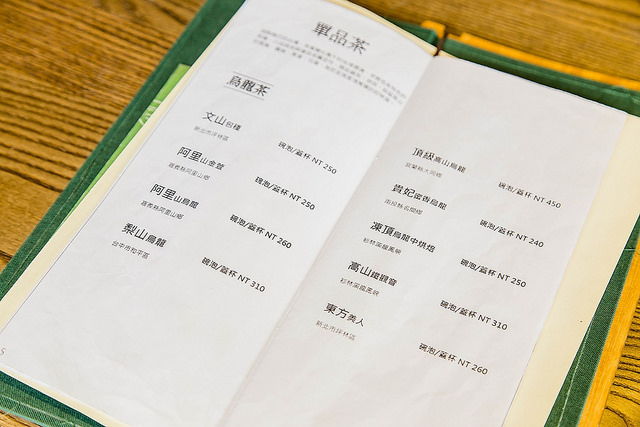 單品茶
烏龍茶
文山包種
新北市坪林區
碗泡/蓋杯 NT 250
阿里山金萱
嘉義縣阿里山鄉
碗泡/蓋杯 NT 250
阿里山烏龍
嘉義縣阿里山鄉
碗泡/蓋杯 NT 260
梨山烏龍
台中市和平區
碗泡/蓋杯 NT 310
5
頂級高山烏龍
宜蘭縣大同鄉
碗泡/蓋杯 NT 450
貴妃蜜香烏龍
南投縣名間鄉
碗泡/蓋杯 NT 240
凍頂烏龍中烘焙
杉林溪龍鳳峽
碗泡/蓋杯 NT 250
高山鐵觀音
杉林溪龍鳳峽
碗泡/蓋杯 NT 310
東方美人
新北市坪林區
碗泡/蓋杯 NT 260